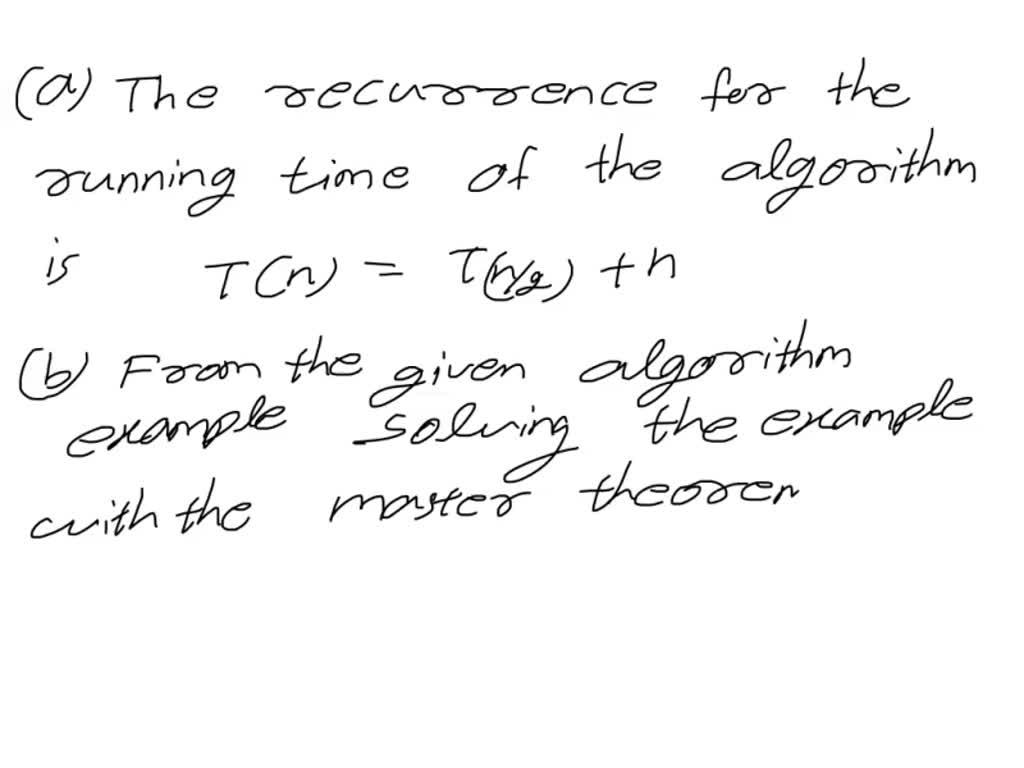 (a) The recurrence for the
running time of the algorithm
is T(n) = T(n/2) + n
(b) From the given algorithm
example solving the example
with the master theorem